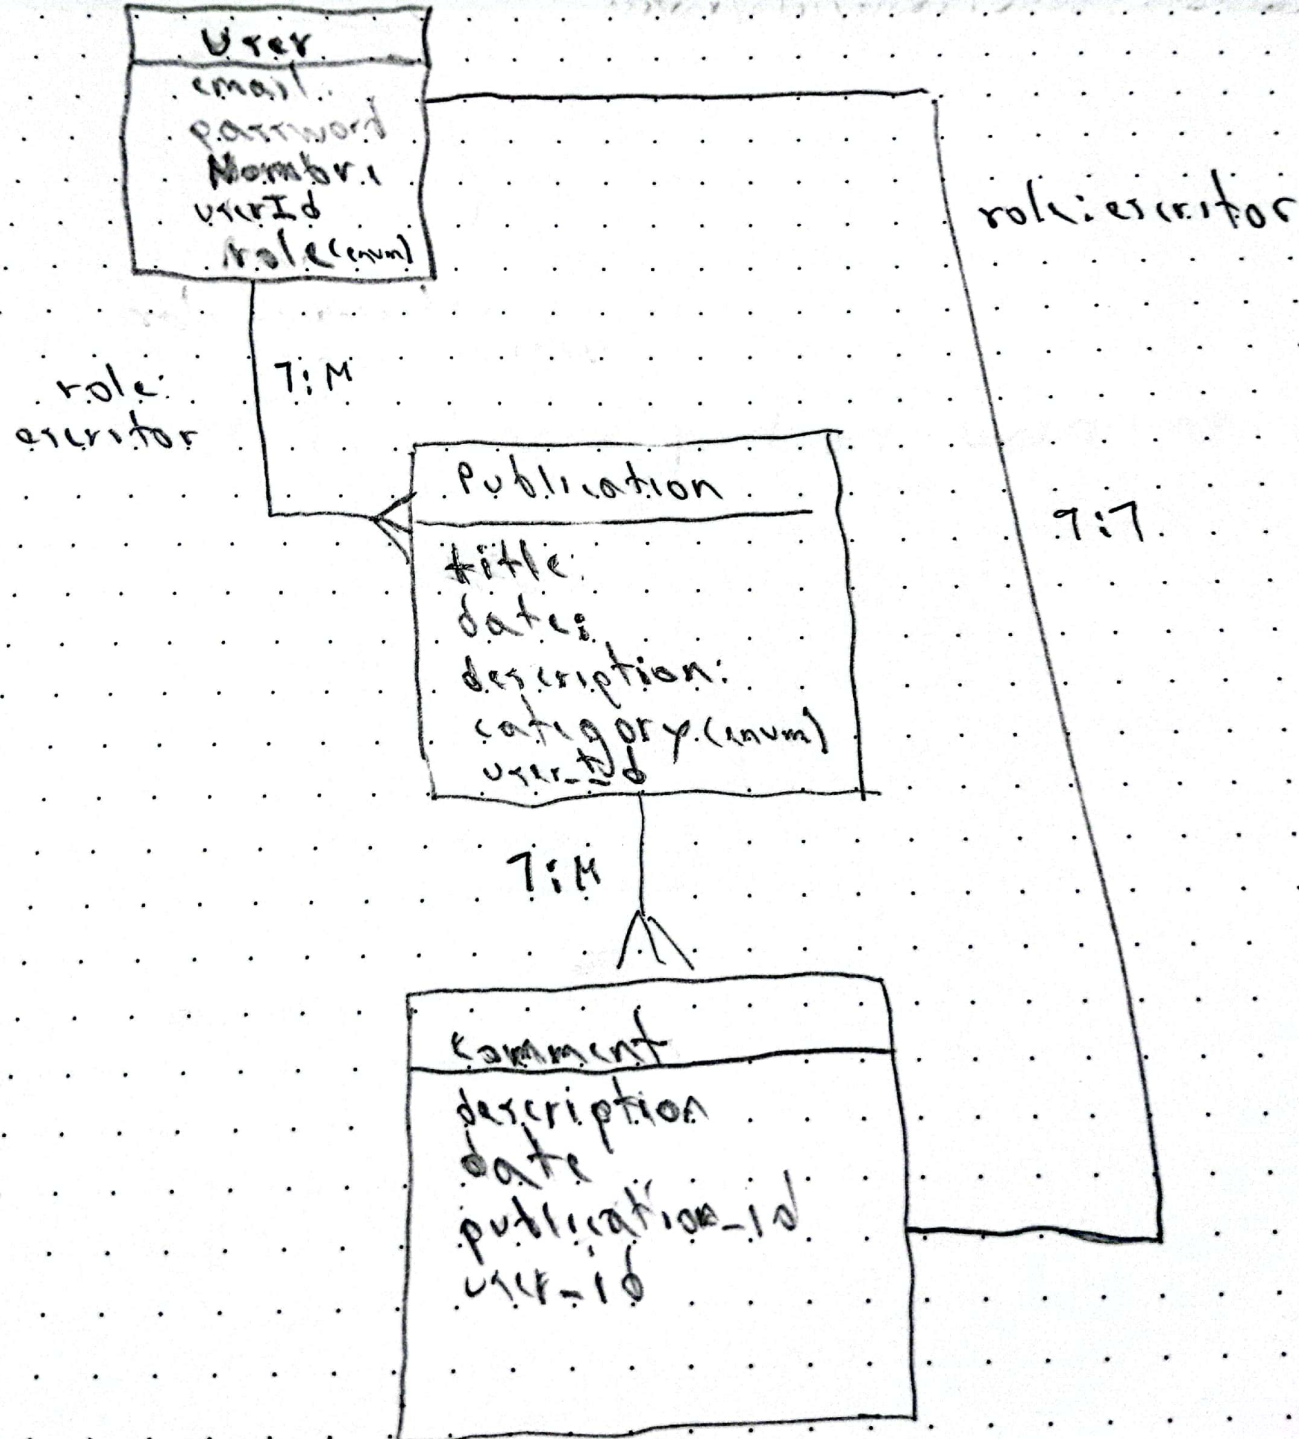 User
email
password
Nombre
userId
role(enum)
role: escritor
role:
escritor
1:M
Publication
title:
date:
description:
category (enum)
user_Id
1:1
1:M
comment
description
date
publication_id
user_id